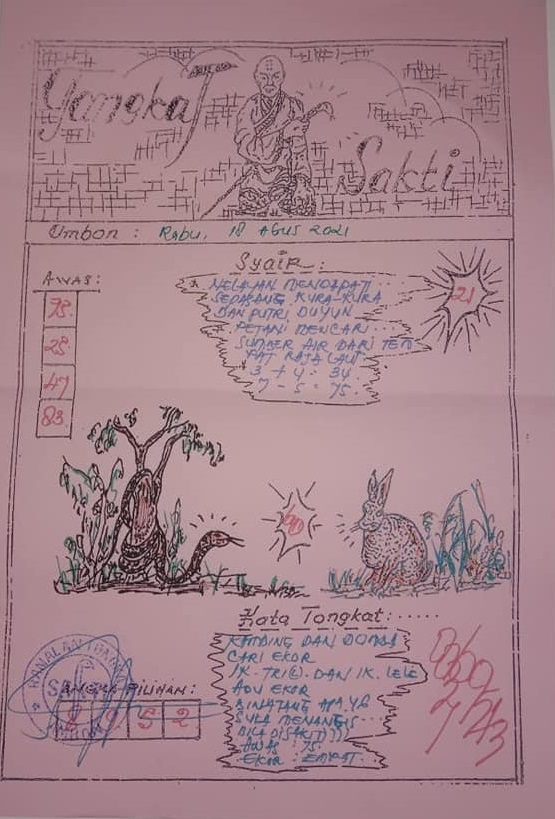 Tongkat
Sakti
Umbon : RABU, 18 AGUS 2021
AWAS:
Syair:
NELAYAN MENDAPATI
SEPASANG KURA-KURA
DAN PUTRI DUYUN
PETANI MENCARI
SUMBER AIR DARI TEM
PAT RAJA LAUT
3 + 4 = 34
7 - 5 = 75.
21
75.
28
47
83
90
Kata Tongkat:......
KAMBING DAN DOMBA
CARI EKOR
IK. TRI DAN IK. LELE
ADU EKOR
BINATANG APA YG
SUKA MENANGIS
BILA DISAKITI???
AWAS : 75.
EKOR : EMPAT
PILIHAN:
9 5 2